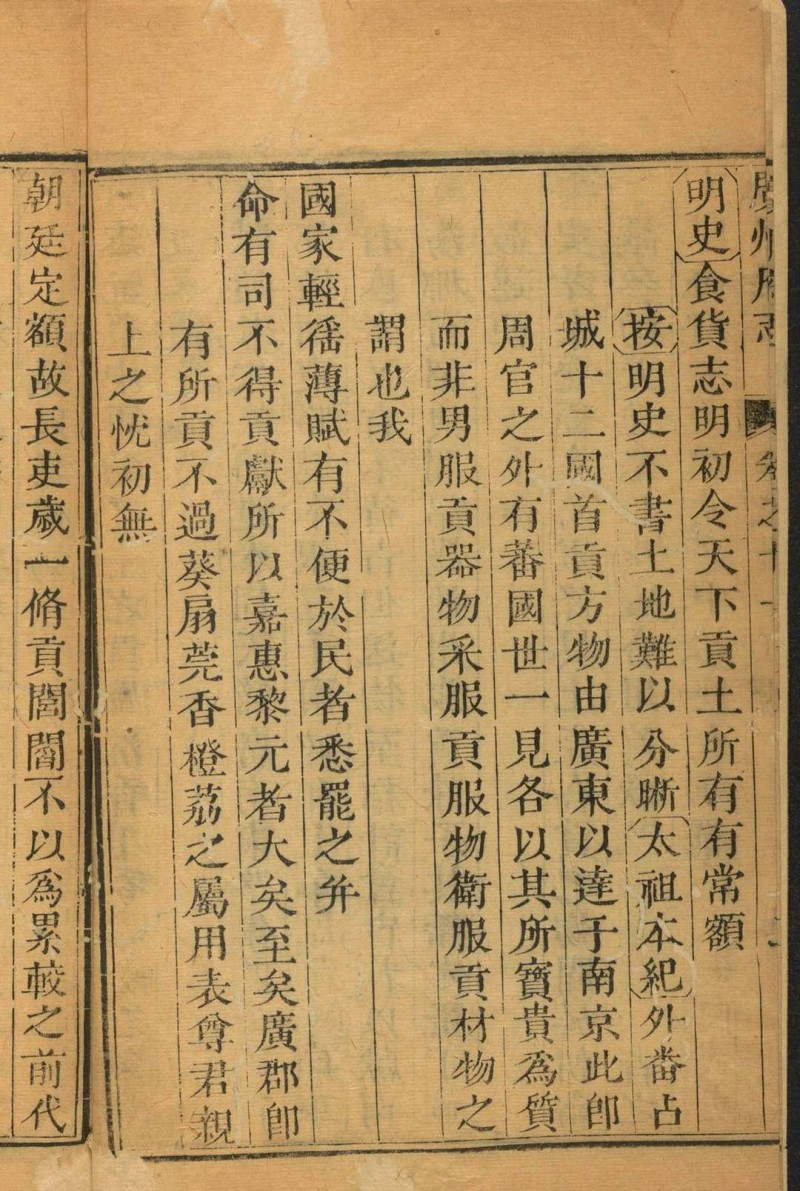 廣州府志 卷之十
明史食貨志明初令天下貢土所有有常額
按明史不書土地難以分晰太祖本紀外番占
城十二國首貢方物由廣東以達于南京此卽
周官之外有蕃國世一見各以其所寳貴爲質
而非男服貢器物采服貢服物衛服貢材物之
謂也我
國家輕徭薄賦有不便於民者悉罷之并
命有司不得貢獻所以嘉惠黎元者大矣至矣廣郡卽
有所貢不過葵扇莞香橙荔之屬用表尊君親
上之忱初無
朝廷定額故長吏歲一脩貢閭閻不以爲累較之前代